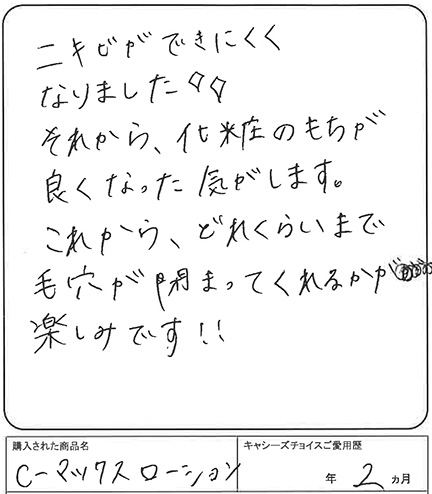 ニキビができにくく
なりました
それから、化粧のもちが
良くなった気がします。
これから、どれくらいまで
毛穴が閉まってくれるかが
楽しみです!!
購入された商品名
キャシーズチョイスご愛用歴
C-マックスローション
年 2 ヵ月